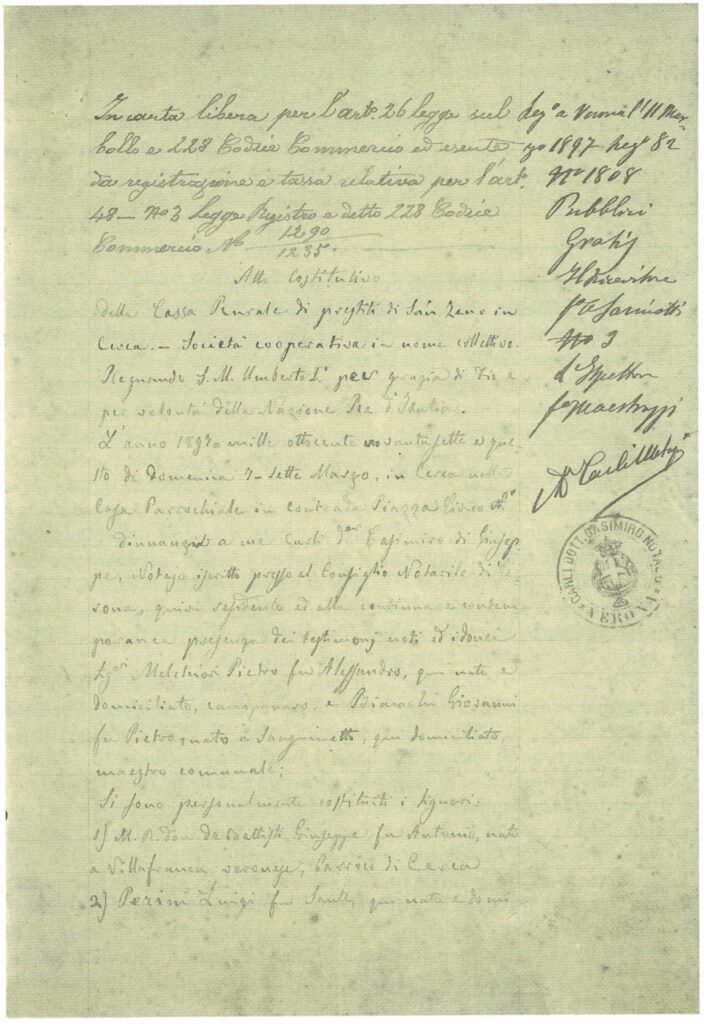 In carta libera per l'art.° 26 legge sul
bollo e 228 Codice Commercio ed esente
da registrazione e tassa relativa per l'art.
48 — N° 3 Legge Registro e detto 228 Codice
Commercio. N° 1290
1235.
Atto Costitutivo
della Cassa Rurale di prestiti di San Zeno in
Cerea. — Società cooperativa in nome collettivo.
Regnando S. M. Umberto I.° per grazia di Dio e
per volontà della Nazione Re d'Italia.
L'anno 1897 – mille ottocento novantasette e que-
sto dì domenica 7 – sette Marzo, in Cerea nella
Casa Parrochiale in contrada Piazza Civico N.°
dinnanzi a me Carli D.or Casimiro di Giusep-
pe, Notajo iscritto presso al Consiglio Notarile di Ve-
rona, quivi residente ed alla continua e contem-
poranea presenza dei testimonj noti ed idonei
Sig.ori Melchiori Pietro fu Alessandro, qui nato e
domiciliato, campanaro, e Bianchi Giovanni
fu Pietro, nato a Sanguinetto, qui domiciliato,
maestro comunale;
Si sono personalmente costituiti i Signori:
1) M. R. Don De Battisti Giuseppe fu Antonio, nato
a Villafranca veronese, Parroco di Cerea
2) Perini Luigi fu Sante, qui nato e domi-
Reg.° a Verona l'11 Mar-
zo 1897 Reg° 82
N° 1808
Pubblici
Gratis
Il Ricevitore
N° 3
CARLI DOTT. CASIMIRO NOTA
VERONA